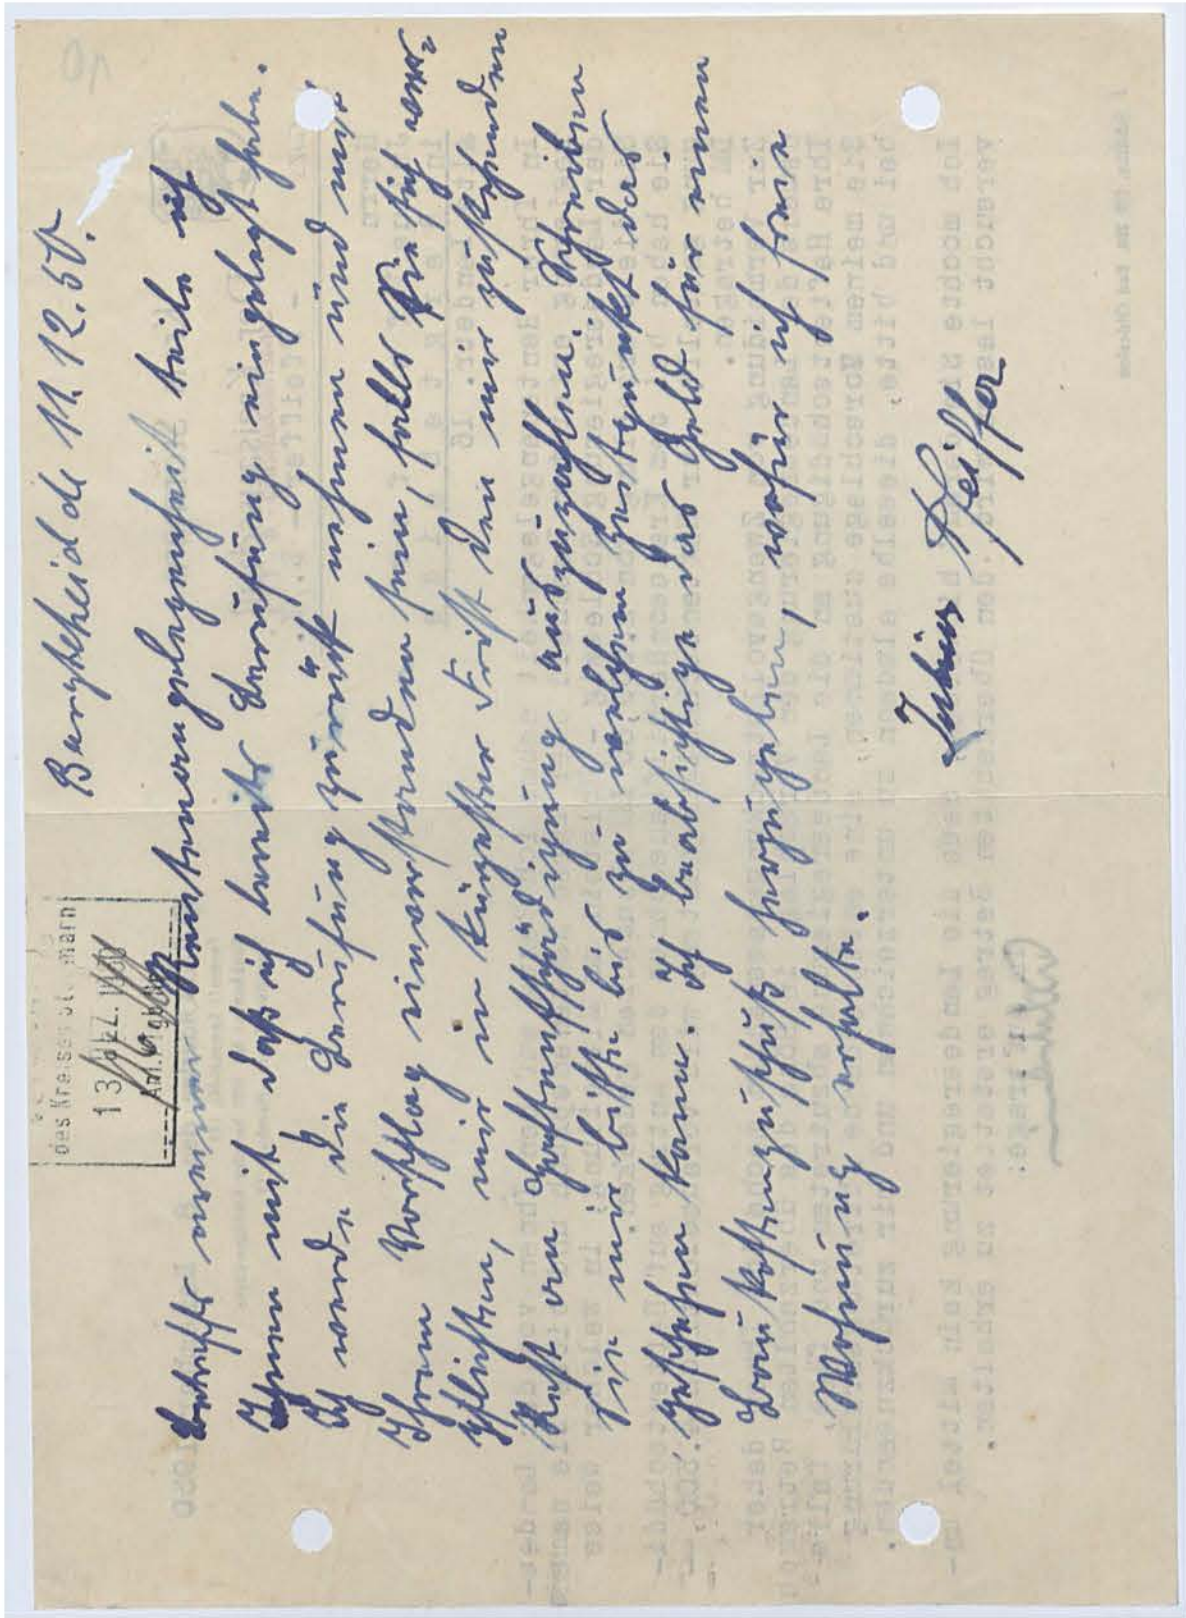 Bargteheide 11.12.50.
des Kreisesst. marn
13. Dez. 1950
Anl. Tgb.
Betrifft meiner Rentenangelegenheit teile ich
Ihnen mit daß ich bereits Berufung eingelegt habe.
Ich werde die Berufung zurück nehmen und mit
Ihrem Vorschlag einverstanden sein, falls Sie sich ver-
pflichten, mir in kürzester Frist den mir zustehenden
Rest an Haftentschädigung auszuzahlen. Schreiben
Sie mir bitte bis zu welchem Zeitpunkt das
geschehen kann. Ich beabsichtige das Geld für einen
Baukostenzuschuß herzugeben, wofür ich eine
Wohnung erhalte.
Julius Pfeiffer
10